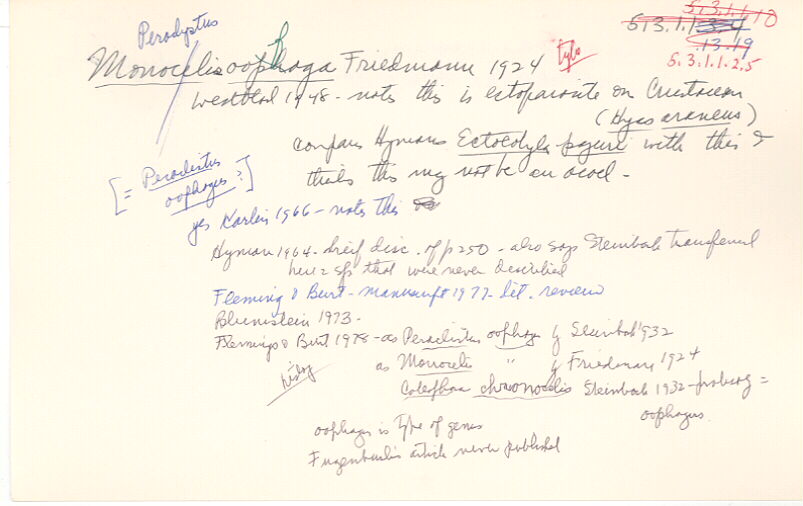 Perodystus
5.3.1.1.10
5.3.1.1.3.4
.13.19
5.3.1.1.2.5
Monocelis oophaga Friedmann 1924 typo
Westblad 1948 - notes this is ectoparasite on Crustacean
(Hyas araneus)
compares Hymans Ectocotyla paguri with this &
thinks this may not be an acoel -
[= Peraclistus
oophagus?]
yes Karling 1966 - notes this
Hyman 1964 - brief disc. of p250 - also says Steinbock transferred
here 2 sps that were never described
Fleming & Burt - manuscript 1977 - lit. review
1973 -
Flemings & Burt 1978 - as Peraclistus oophag by Steinbok 1932
as Monocelis " by Friedmann 1924
chionocelis Steinbock 1932 - probably =
oophagus
oophagus is type of genus
article never published